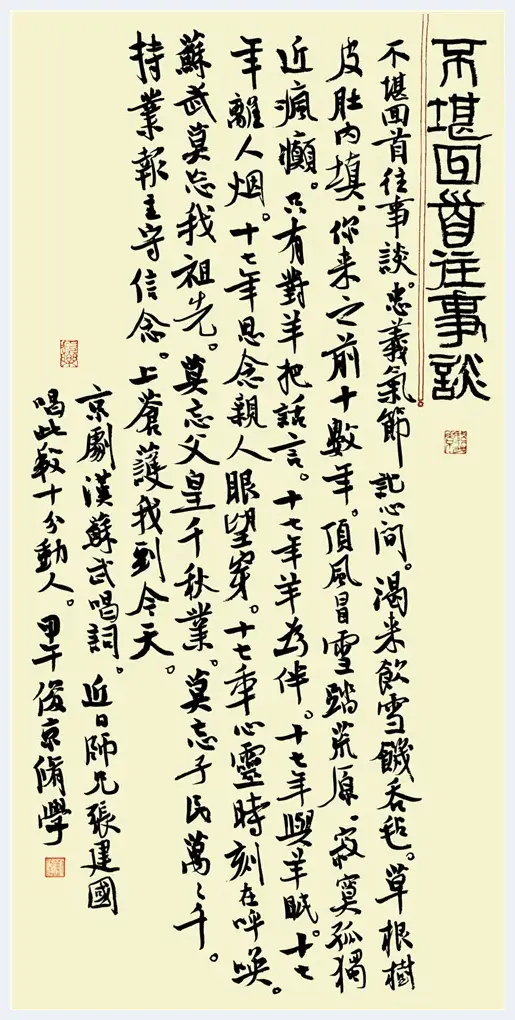 不堪回首往事談
不堪回首往事談。忠義氣節記心間。渴來飲雪饑吞氈。草根樹
皮肚内填。你來之前十數年。頂風冒雪踏荒原。寂寞孤獨
近瘋癲。只有對羊把話言。十七年羊為伴。十七年與羊眠。十七
年離人烟。十七年思念親人眼望穿。十七年心靈時刻在呼喚。
蘇武莫忘我祖先。莫忘父皇千秋業。莫忘子民萬々千。
持業報主守信念。上蒼護我到今天。
京劇漢蘇武唱詞。近日師兄張建國
唱此段十分動人。甲午俊京脩學